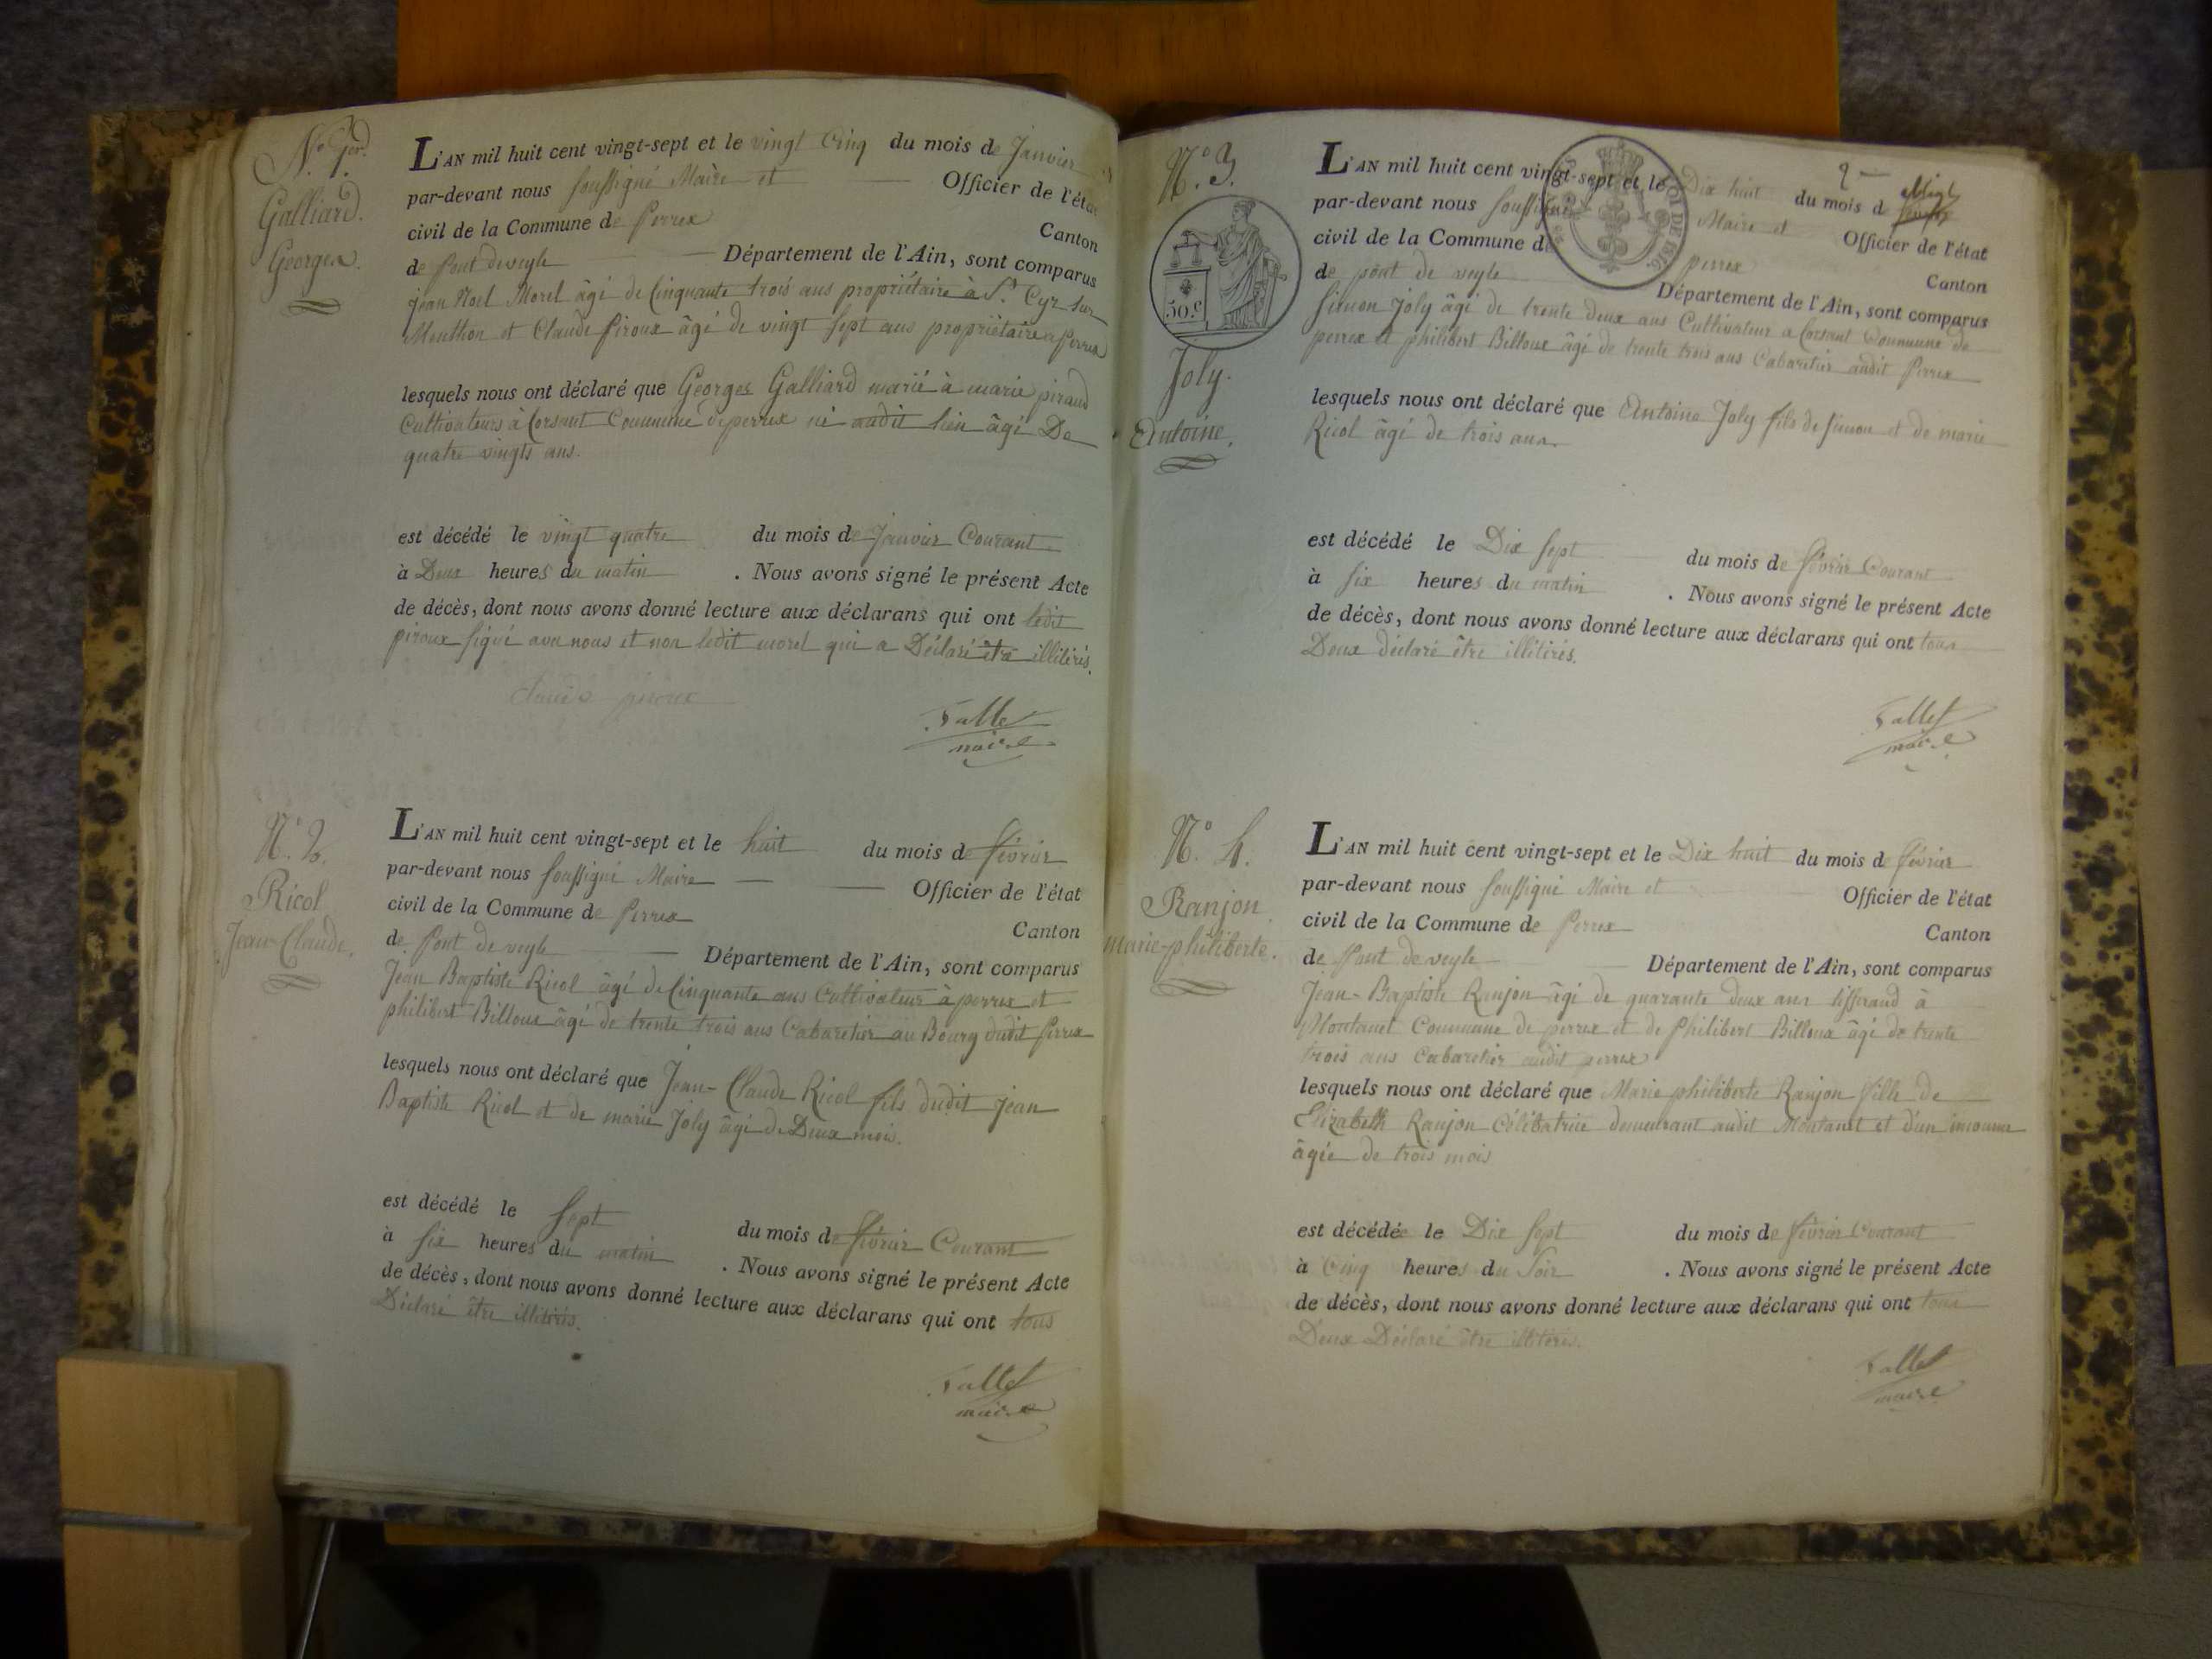 N.° 1er.
Galliard.
Georges.
L'AN mil huit cent vingt-sept et le vingt Cinq du mois de Janvier
par-devant nous soussigné Maire et Officier de l'état
civil de la Commune de Perrex Canton
de Pont deveyle Département de l'Ain, sont comparus
jean Noel Morel âgé de Cinquante trois ans propriétaire à St. Cyr sur
Menthon et Claude Piroux âgé de vingt sept ans propriétaire a Perrex
lesquels nous ont déclaré que Georges Galliard marié à marie piraud
Cultivateurs à Corsant Commune de perrex né audit lieu âgé De
quatre vingts ans.
est décédé le vingt quatre du mois de Janvier Courant
à Deux heures du matin . Nous avons signé le présent Acte
de décès, dont nous avons donné lecture aux déclarans qui ont ledit
piroux signé avec nous et non ledit morel qui a Déclaré être illitérés.
Claude piroux
Vallet
maire
N.° 2.
Ricol
Jean-Claude.
L'AN mil huit cent vingt-sept et le huit du mois de février
par-devant nous soussigné Maire Officier de l'état
civil de la Commune de Perrex Canton
de Pont de veyle Département de l'Ain, sont comparus
Jean Baptiste Ricol âgé de Cinquante ans Cultivateur à perrex et
philibert Billoux âgé de trente trois ans Cabaretier au Bourg dudit Perrex
lesquels nous ont déclaré que Jean-Claude Ricol fils dudit jean
Baptiste Ricol et de marie Joly âgé de Deux mois.
est décédé le sept du mois de février Courant
à six heures du matin . Nous avons signé le présent Acte
de décès, dont nous avons donné lecture aux déclarans qui ont tous
Déclaré être illitérés.
Vallet
maire
2
N.° 3.
50.c
LOI DE 1816.
Joly.
Antoine.
L'AN mil huit cent vingt-sept et le Dix huit du mois de
par-devant nous soussigné Maire et Officier de l'état
civil de la Commune de perrex Canton
de pont de veyle Département de l'Ain, sont comparus
Simon Joly âgé de trente deux ans Cultivateur a Corsant Commune de
perrex et philibert Billoux âgé de trente trois ans Cabaretier audit Perrex
lesquels nous ont déclaré que Antoine Joly fils de Simon et de marie
Ricol âgé de trois ans.
est décédé le Dix sept du mois de février Courant
à six heures du matin . Nous avons signé le présent Acte
de décès, dont nous avons donné lecture aux déclarans qui ont tous
Deux déclaré être illitérés.
Vallet
maire
N.° 4.
Ranjon
marie-philiberte.
L'AN mil huit cent vingt-sept et le Dix huit du mois de février
par-devant nous soussigné Maire et Officier de l'état
civil de la Commune de Perrex Canton
de Pont de veyle Département de l'Ain, sont comparus
Jean-Baptiste Ranjon âgé de quarante deux ans tisserand à
Montanet Commune de perrex et de Philibert Billoux âgé de trente
trois ans Cabaretier audit perrex
lesquels nous ont déclaré que Marie philiberte Ranjon fille de
Elizabeth Ranjon Célibatrice demeurant audit Montanet et d'un inconnu
âgée de trois mois
est décédée le Dix sept du mois de février Courant
à Cinq heures du Soir . Nous avons signé le présent Acte
de décès, dont nous avons donné lecture aux déclarans qui ont tous
Deux Déclaré être illitérés.
Vallet
maire